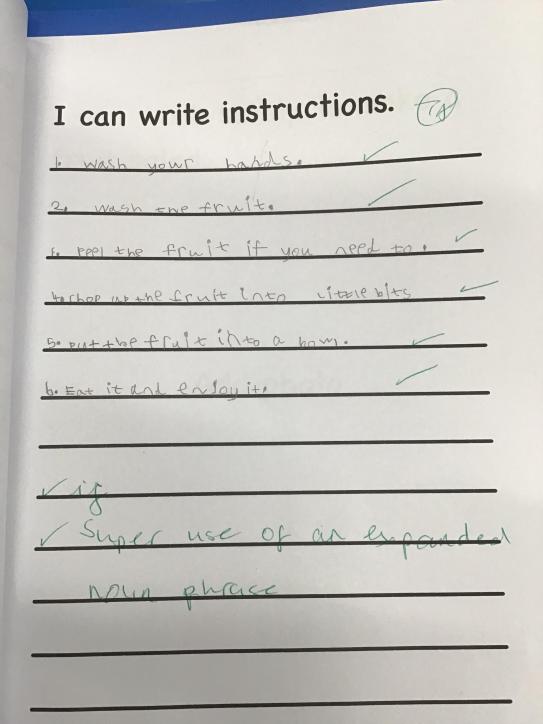 I can write instructions. TA
1. wash your hands.
2. wash the fruit.
Peel the fruit if you need to.
4. chop up the fruit into little bits
5. Put the fruit into a bowl.
6. Eat it and enjoy it.
✓ if
✓ Super use of an expanded
noun phrase